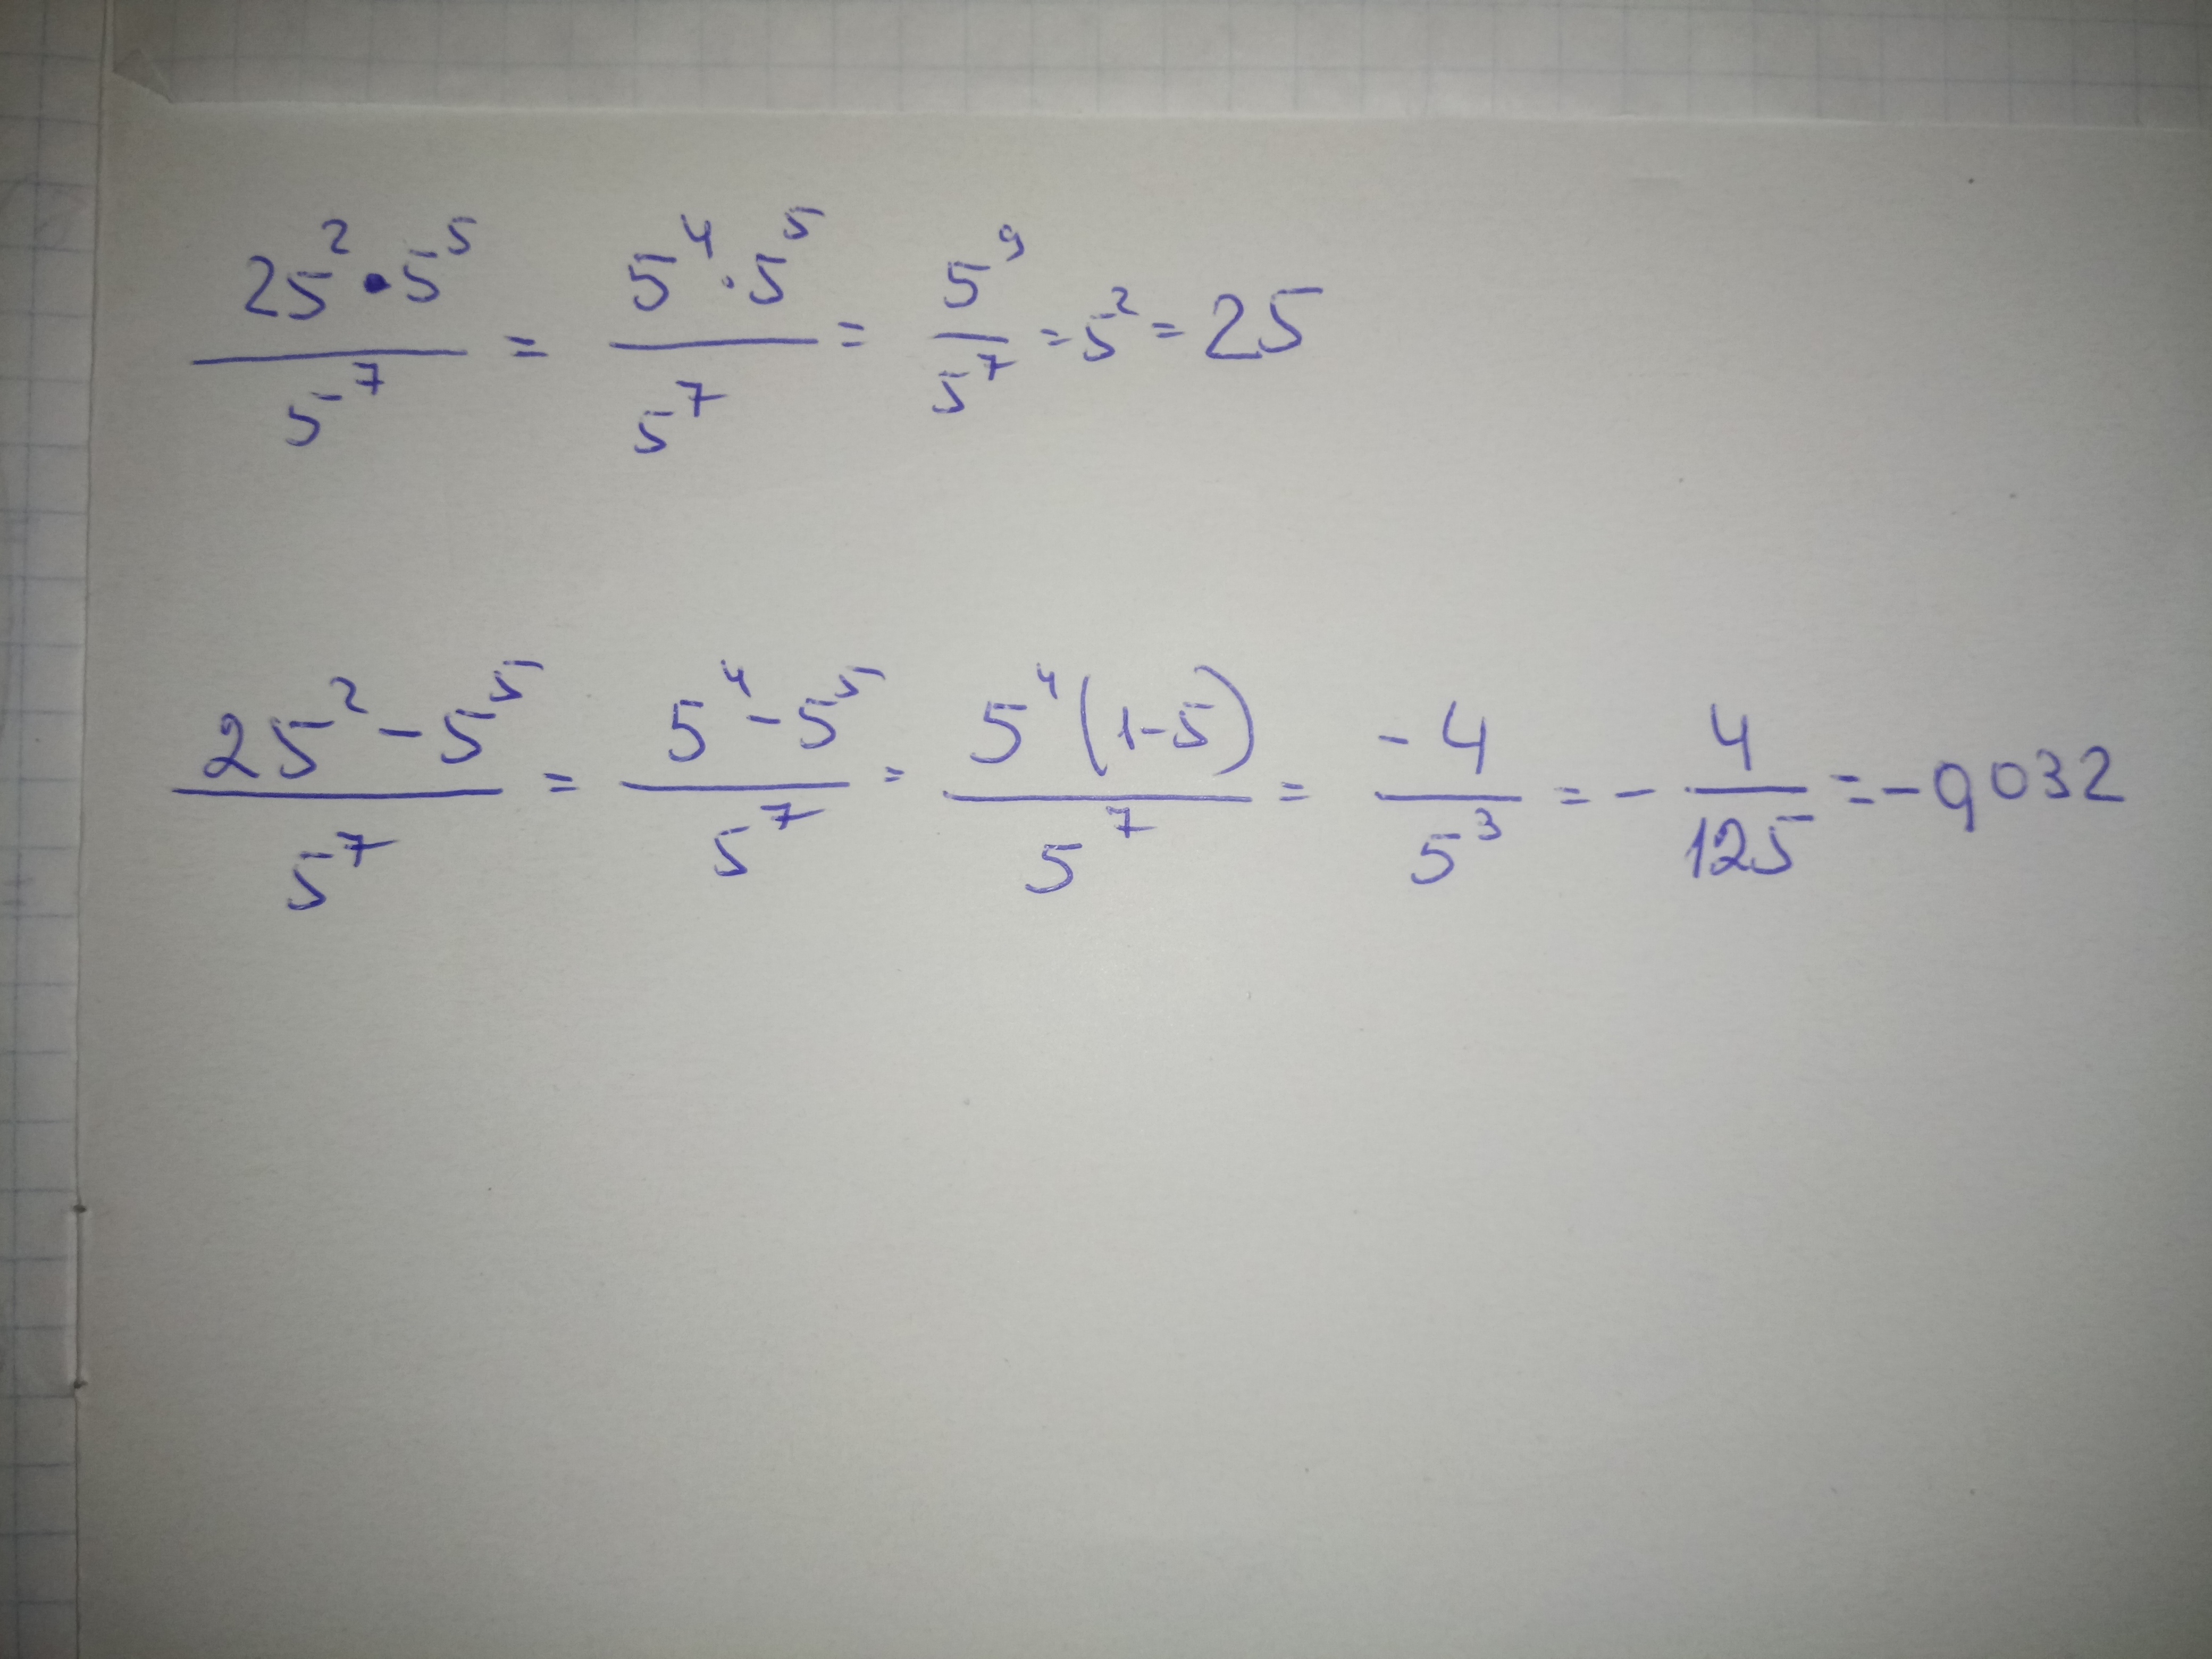 25² • 5⁵ / 5⁷ = 5⁴ · 5⁵ / 5⁷ = 5⁹ / 5⁷ = 5² = 25
25² - 5⁵ / 5⁷ = 5⁴ - 5⁵ / 5⁷ = 5⁴(1-5) / 5⁷ = -4 / 5³ = - 4 / 125 = -0,032